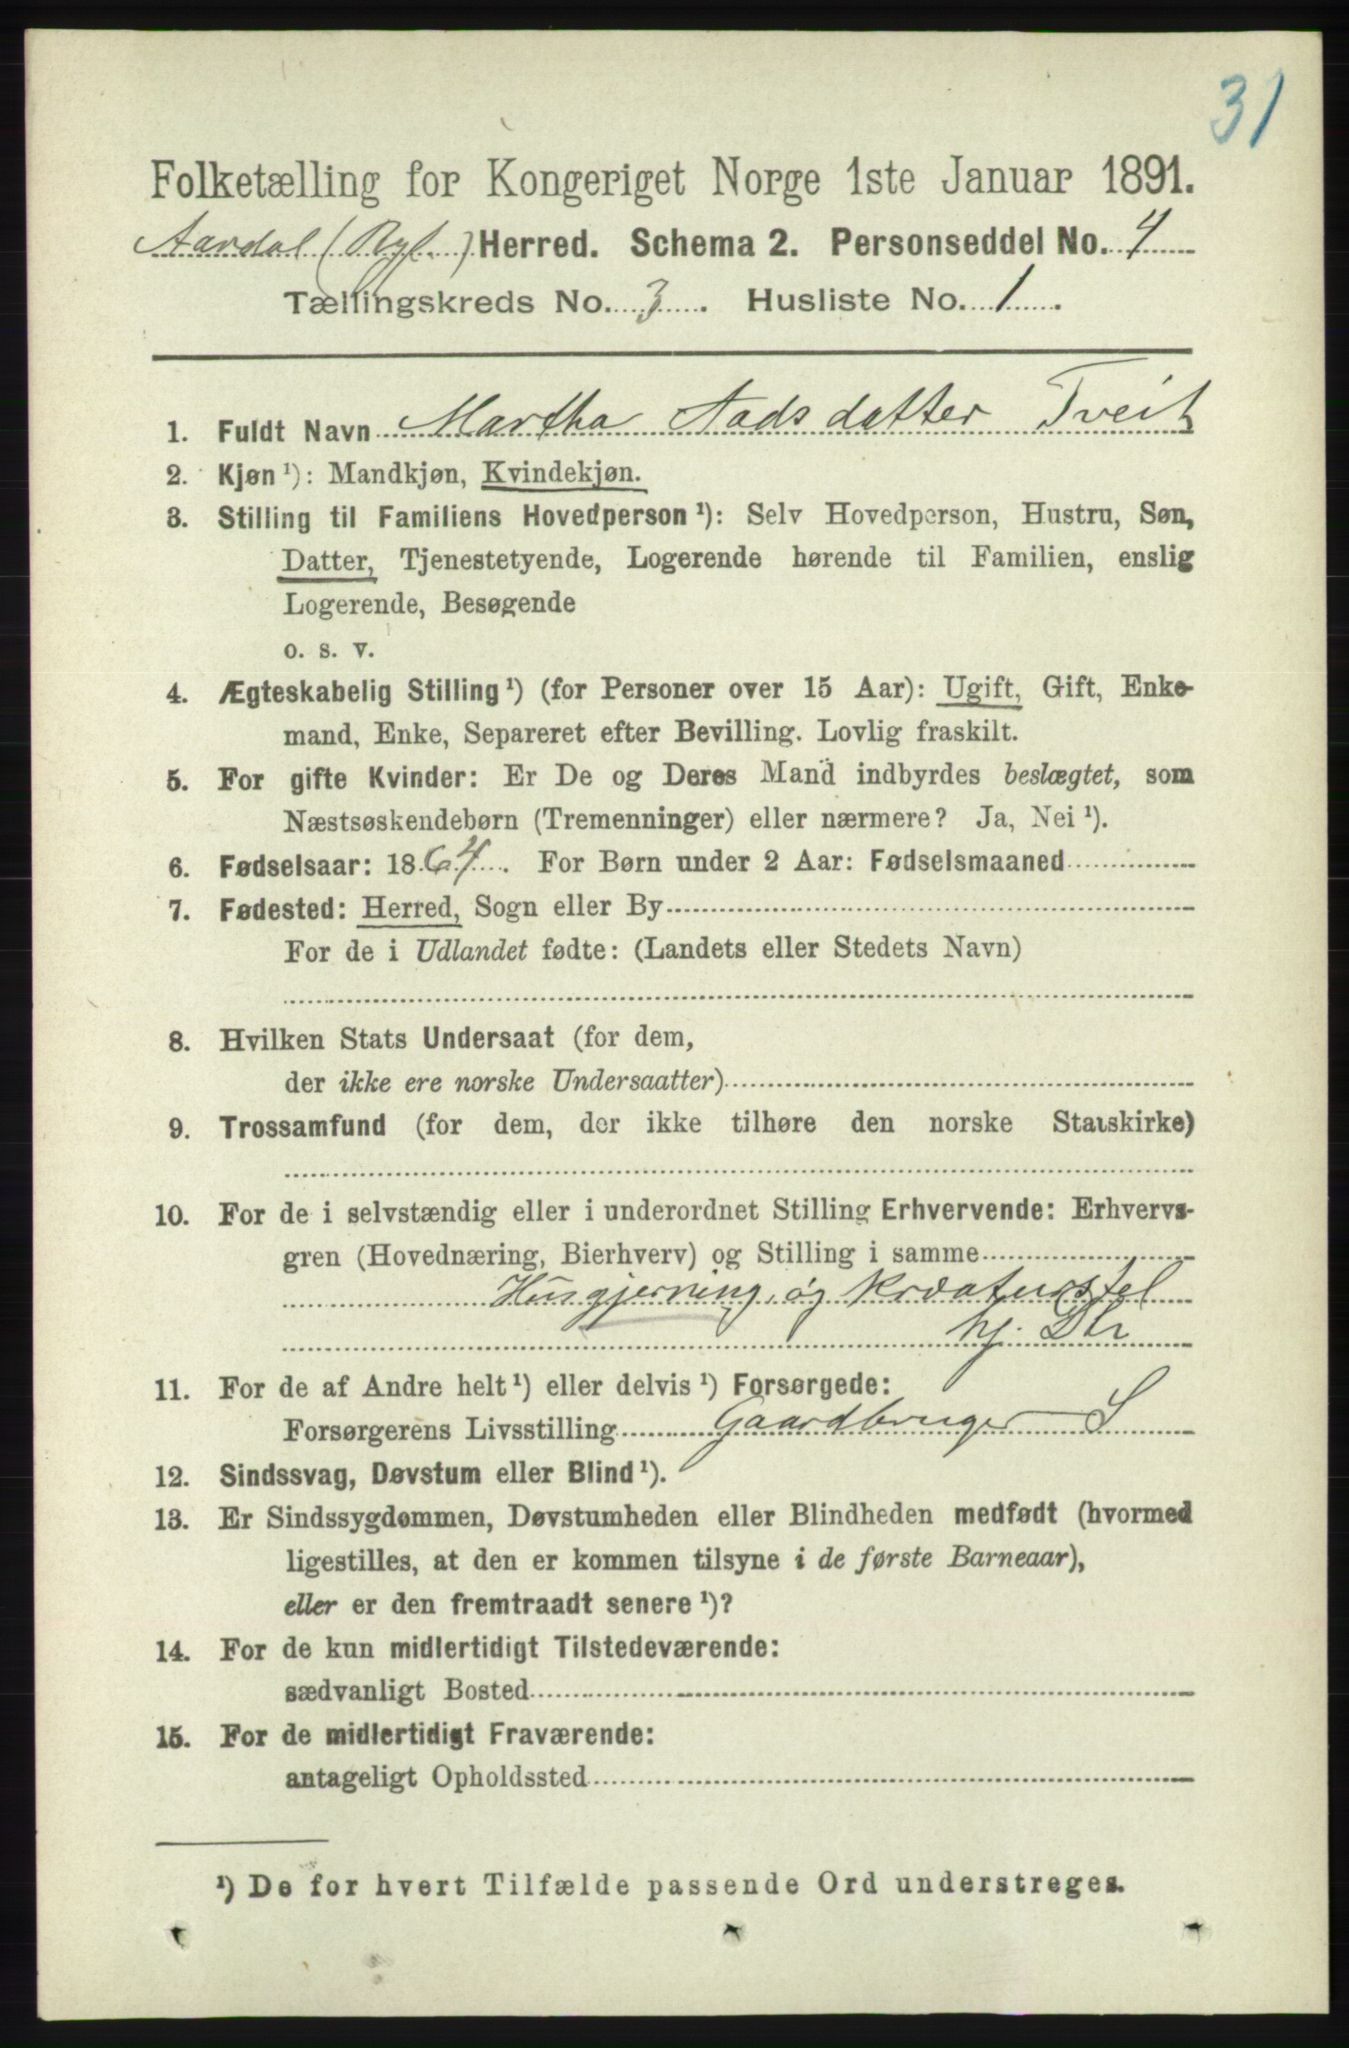 31
Folketælling for Kongeriget Norge 1ste Januar 1891.
Aardal (Ryf.) Herred. Schema 2. Personseddel No. 4
Tællingskreds No. 3. Husliste No. 1.
1. Fuldt Navn Martha Aadsdatter Tveit
2. Kjøn ¹): Mandkjøn, Kvindekjøn.
3. Stilling til Familiens Hovedperson ¹): Selv Hovedperson, Hustru, Søn,
Datter, Tjenestetyende, Logerende hørende til Familien, enslig
Logerende, Besøgende
o. s. v.
4. Ægteskabelig Stilling ¹) (for Personer over 15 Aar): Ugift, Gift, Enke-
mand, Enke, Separeret efter Bevilling. Lovlig fraskilt.
5. For gifte Kvinder: Er De og Deres Mand indbyrdes beslægtet, som
Næstsøskendebørn (Tremenninger) eller nærmere? Ja, Nei ¹).
6. Fødselsaar: 1864. For Børn under 2 Aar: Fødselsmaaned
7. Fødested: Herred, Sogn eller By
For de i Udlandet fødte: (Landets eller Stedets Navn)
8. Hvilken Stats Undersaat (for dem,
der ikke ere norske Undersaatter)
9. Trossamfund (for dem, der ikke tilhøre den norske Statskirke)
10. For de i selvstændig eller i underordnet Stilling Erhvervende: Erhvervs-
gren (Hovednæring, Bierhverv) og Stilling i samme
Husgjerning og Kreaturstel
hj. Str
11. For de af Andre helt ¹) eller delvis ¹) Forsørgede:
Forsørgerens Livsstilling Gaardbruger S
12. Sindssvag, Døvstum eller Blind ¹).
13. Er Sindssygdommen, Døvstumheden eller Blindheden medfødt (hvormed
ligestilles, at den er kommen tilsyne i de første Barneaar),
eller er den fremtraadt senere ¹)?
14. For de kun midlertidigt Tilstedeværende:
sædvanligt Bosted
15. For de midlertidigt Fraværende:
antageligt Opholdssted
¹) De for hvert Tilfælde passende Ord understreges.